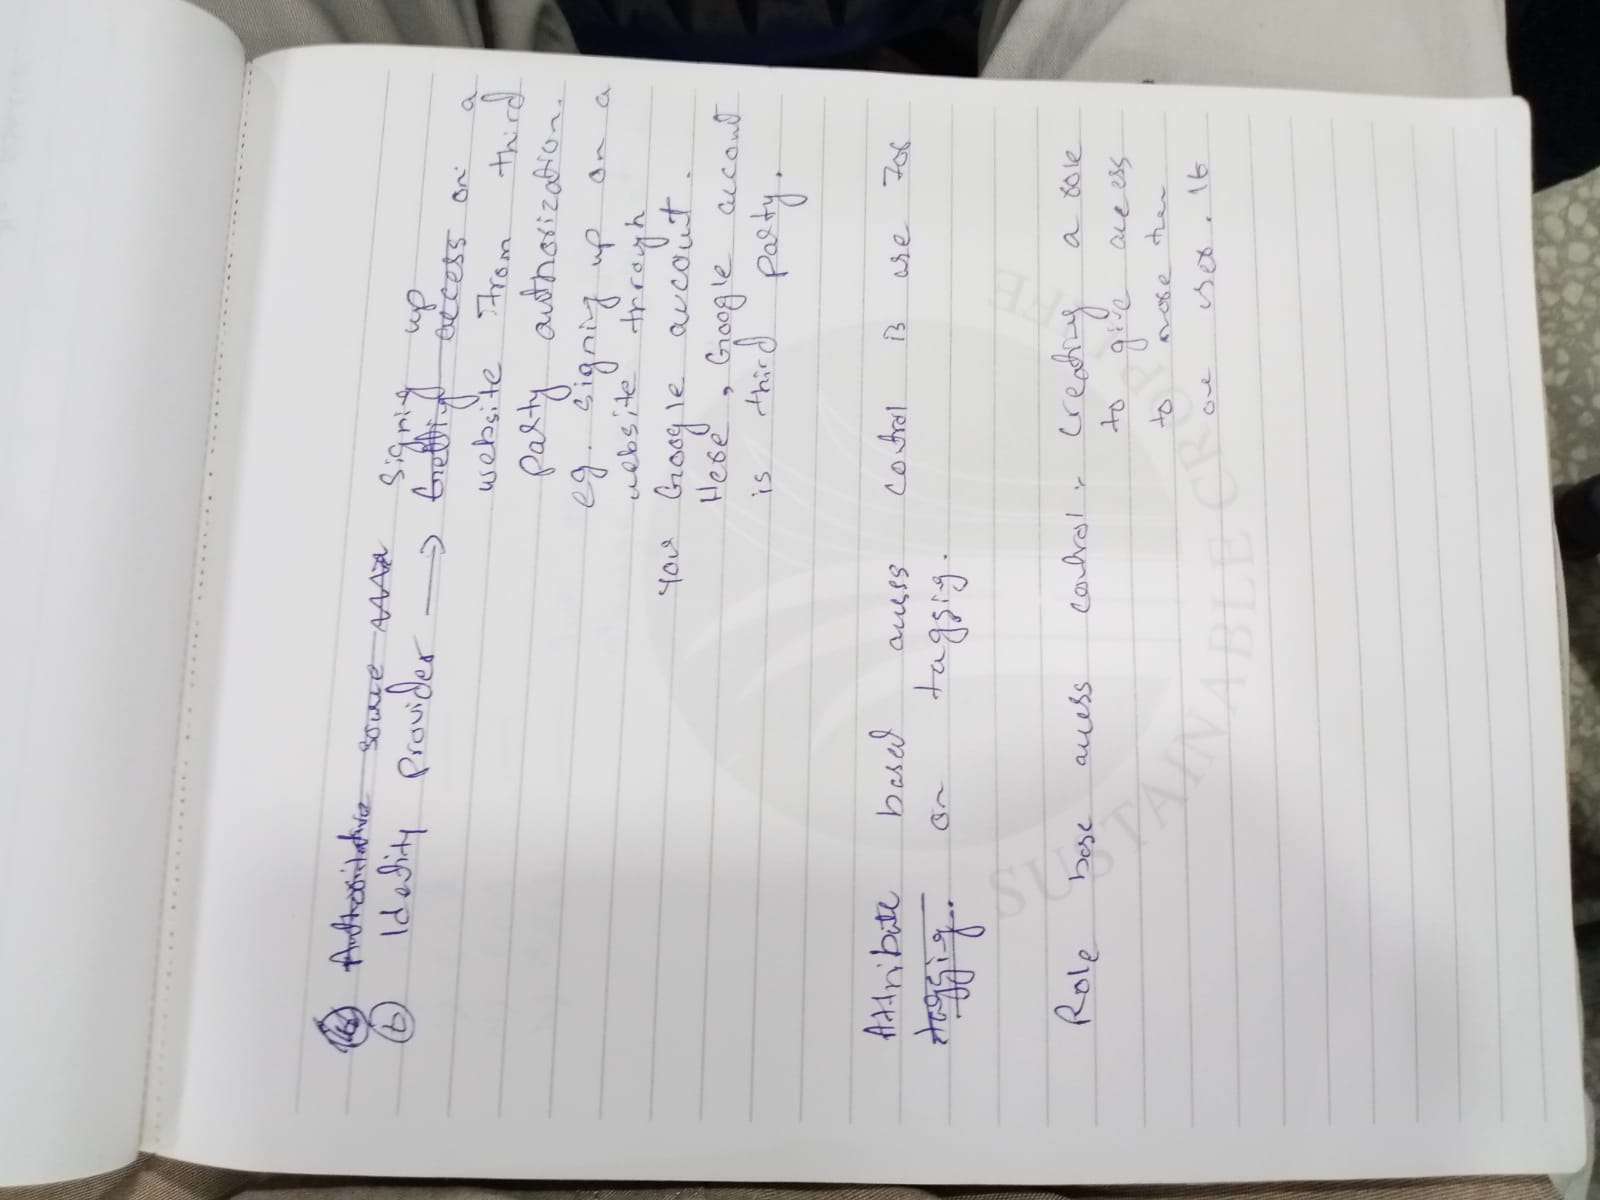 Authoritative source
Signing up
(b) Identity Provider → Getting access on a
website from third
party authorization.
eg. Signing up on a
website through
your Google account.
Here, Google account
is third party.
Attribute based access control is use for
tagging. on tagging.
Role base access control :- Creating a role
to give access
to more then
one user. It
SUSTAINABLE CROP